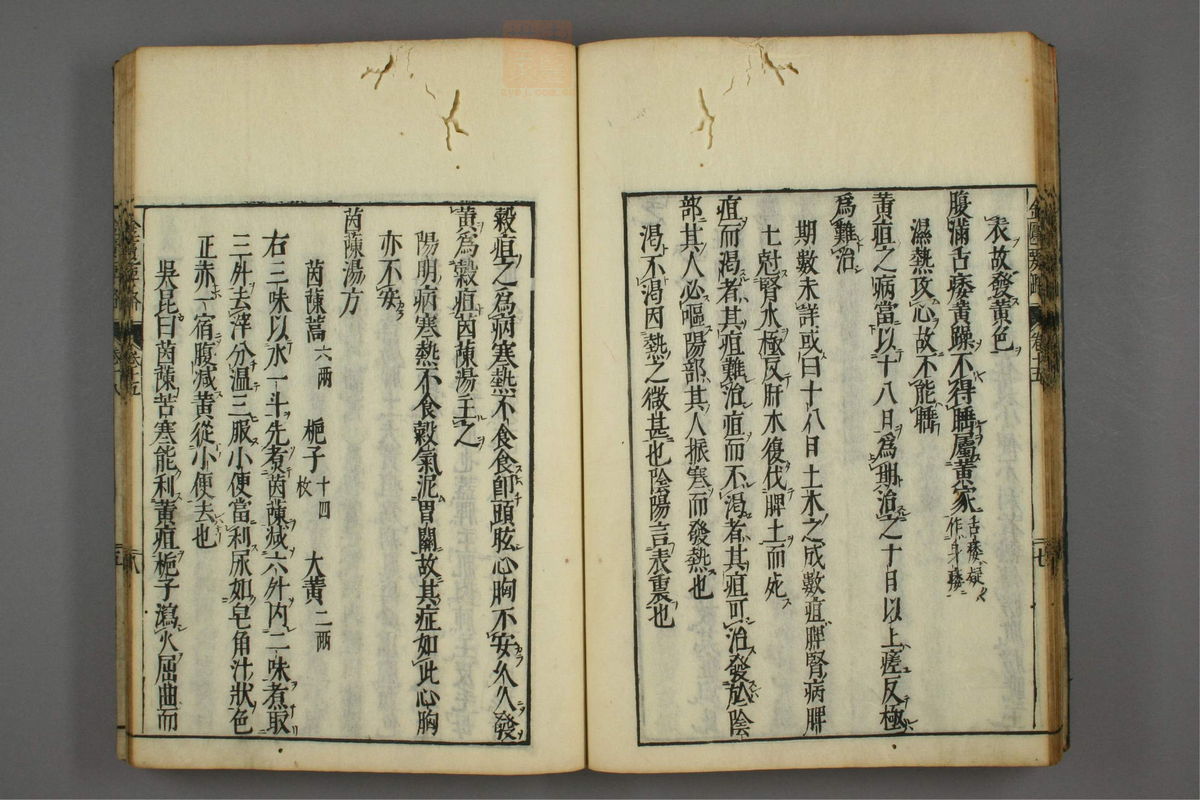 衣故發黃色
腹滿舌痿黃躁不得睡屬黃家 舌痿疑作身痿
濕熱攻心故不能睡
黃疸之病當以十八日為期治之十日以上瘥反極
為難治
期數未詳或曰十八日土木之成數疸脾腎病脾
七尅腎水極反肝木復伐脾土而死
疸而渴者其疸難治疸而不渴者其疸可治發於陰
部其人必嘔陽部其人振寒而發熱也
渴不渴因熱之微甚也陰陽言表裏也
穀疸之為病寒熱不食食即頭眩心胸不安久久發
黃為穀疸茵蔯湯主之
陽明病寒熱不食穀氣泥胃關故其症如此心胸
亦不安
茵蔯湯方
茵蔯蒿六兩 梔子十四枚 大黃二兩
右三味以水一斗先煮茵蔯減六升內二味煮取
三升去滓分溫三服小便當利尿如皂角汁狀色
正赤一宿腹減黃從小便去也
吳昆曰茵蔯苦寒能利黃疸梔子瀉火屈曲而